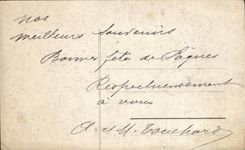 nos
meilleurs souvenirs
Bonnes fêtes de Pâques
Respectueusement
à vous
A. et M. Touchard